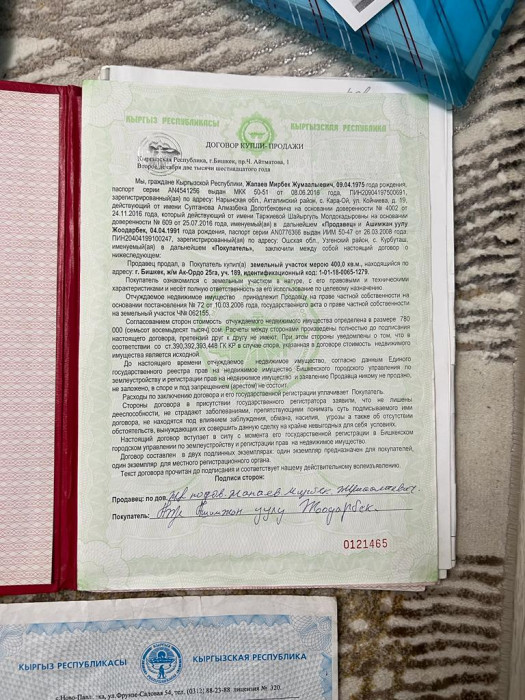 КЫРГЫЗ РЕСПУБЛИКАСЫ КЫРГЫЗСКАЯ РЕСПУБЛИКА
ДОГОВОР КУПЛИ- ПРОДАЖИ
Кыргызская Республика, г.Бишкек, пр.Ч. Айтматова, 1
Второе декабря две тысячи шестнадцатого года
Мы, граждане Кыргызской Республики, Жапаев Мирбек Жумаалыевич, 09.04.1975 года рождения,
паспорт серии AN4541256 выдан МКК 50-51 от 08.06.2016 года, ПИН20904197500691,
зарегистрированный(ая) по адресу: Нарынская обл., Акталинский район, с. Кара-Ой, ул. Койчиева, д. 19,
действующий от имени Султанова Алмазбека Долотбековича на основании доверенности № 4002 от
24.11.2016 года, который действующий от имени Таркиевой Шайыргуль Молдокадыровны на основании
доверенности № 609 от 25.07.2016 года, именуемый(ая) в дальнейшем «Продавец» и Ашимжан уулу
Жоодарбек, 04.04.1991 года рождения, паспорт серии AN0776366 выдан ИИМ 50-47 от 26.03.2008 года:
ПИН20404199100247, зарегистрированный(ая) по адресу: Ошская обл., Узгенский район, с. Курбуташ,
именуемый(ая) в дальнейшем «Покупатель», заключили между собой настоящий договор о
нижеследующем:
Продавец продал, а Покупатель купил(а) земельный участок мерою 400,0 кв.м., находящийся по
адресу: г. Бишкек, ж/м Ак-Ордо 25га, уч. 189, идентификационный код: 1-01-18-0065-1279.
Покупатель ознакомлен с земельным участком в натуре, с его правовыми и техническими
характеристиками и несёт полную ответственность за его использование по целевому назначению.
Отчуждаемое недвижимое имущество принадлежит Продавцу на праве частной собственности на
основании постановления № 72 от 10.03.2006 года, государственного акта о праве частной собственности
на земельный участок Ч№ 062155.
Согласованием сторон стоимость отчуждаемого недвижимого имущества определена в размере 780
000 (семьсот восемьдесят тысяч) сом. Расчеты между сторонами произведены полностью до подписания
настоящего договора, претензий друг к другу не имеют. При этом стороны уведомлены о том, что в
соответствии со ст.390,392,393,448 ГК КР в случае спора, указанная в договоре стоимость недвижимого
имущества является исходной.
До настоящего времени отчуждаемое недвижимое имущество, согласно данным Единого
государственного реестра прав на недвижимое имущество Бишкекского городского управления по
землеустройству и регистрации прав на недвижимое имущество и заявлению Продавца никому не продано,
не заложено, в споре и под запрещением (арестом) не состоит.
Расходы по заключению договора и его государственной регистрации уплачивает Покупатель.
Стороны договора в присутствии государственного регистратора заявили, что не лишены
дееспособности, не страдают заболеваниями, препятствующими понимать суть подписываемого ими
договора, не находятся под влиянием заблуждения, обмана, насилия, угрозы а также об отсутствии
обстоятельств, вынуждающих их совершить данную сделку на крайне невыгодных для себя условиях.
Настоящий договор вступает в силу с момента его государственной регистрации в Бишкекском
городском управлении по землеустройству и регистрации прав на недвижимое имущество.
Договор составлен в двух подлинных экземплярах: один экземпляр предназначен для покупателей,
один экземпляр для местного регистрационного органа.
Текст договора прочитан до подписания и соответствует нашему действительному волеизъявлению.
Подписи сторон:
Продавец: по дов. Жапаев Мирбек Жумаалыевич
Покупатель: Ашимжан уулу Жоодарбек.
0121465
КЫРГЫЗ РЕСПУБЛИКАСЫ КЫРГЫЗСКАЯ РЕСПУБЛИКА
ул.Фрунзе-Садовая 54, тел. (0312) 88-23-88, лицензия № 320.